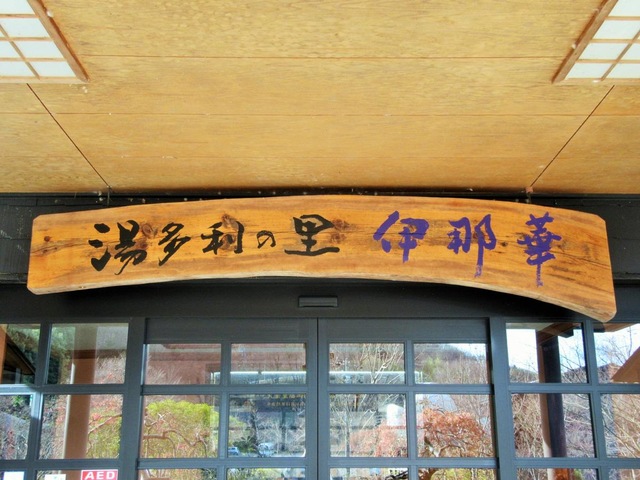 湯多利の里 伊那華
AED